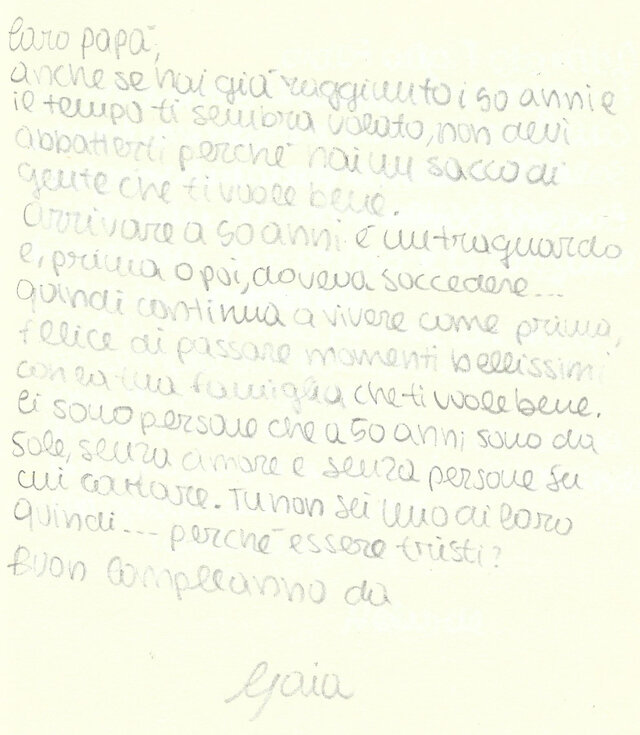 Caro papà,
anche se hai già raggiunto i 50 anni e
il tempo ti sembra volato, non devi
abbatterti perché hai un sacco di
gente che ti vuole bene.
Arrivare a 50 anni è un traguardo
e, prima o poi, doveva soccedere...
quindi continua a vivere come prima,
felice di passare momenti bellissimi
con la tua famiglia che ti vuole bene.
Ci sono persone che a 50 anni sono da
sole, senza amore e senza persone su
cui contare. Tu non sei uno di loro
quindi... perché essere tristi?
Buon compleanno da
Gaia